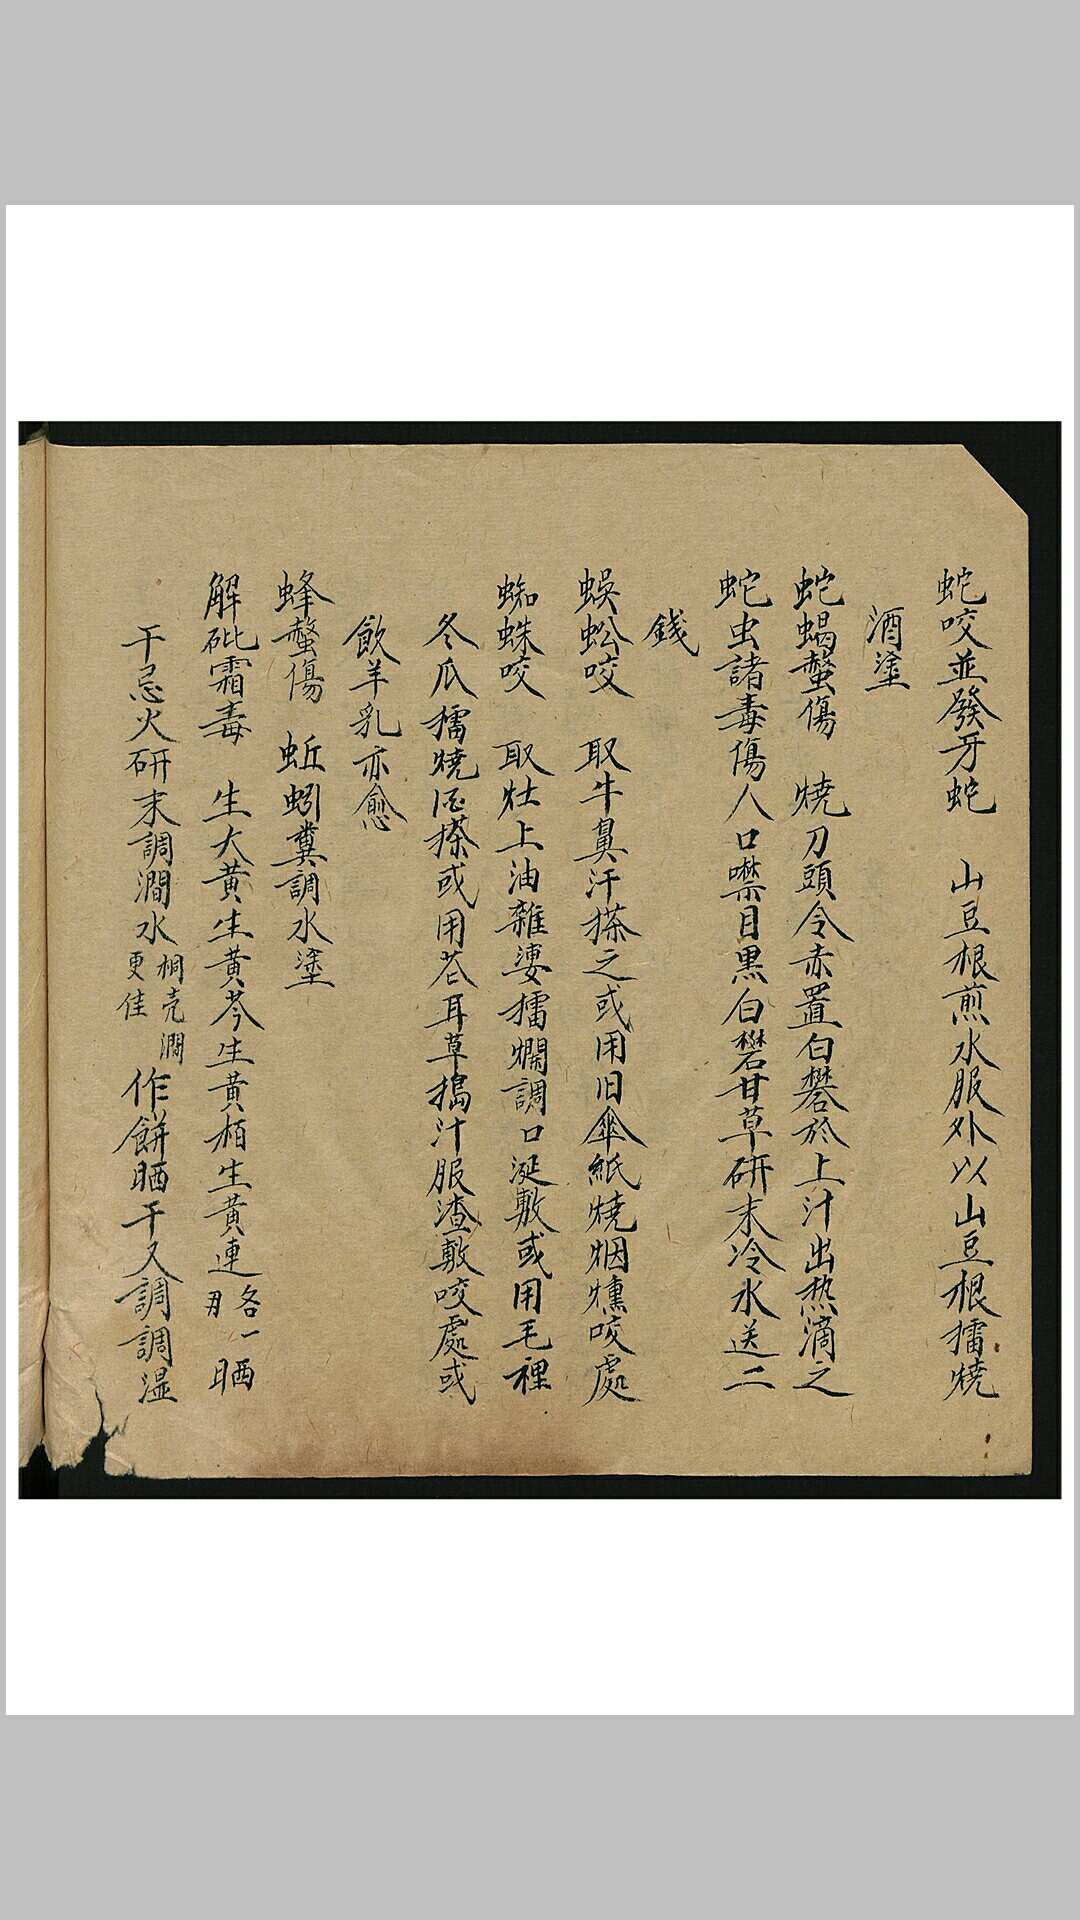 蛇咬並發牙蛇　山豆根煎水服外以山豆根擂燒
酒塗
蛇蝎螫傷　燒刀頭令赤置白礬於上汁出热滴之
蛇虫諸毒傷人口噤目黒白礬甘草研末冷水送二
錢
蜈蚣咬　取牛鼻汗搽之或用旧傘紙燒烟燻咬處
蜘蛛咬　取灶上油雜婆擂爛調口涎敷或用毛裡
冬瓜擂燒酒搽或用苍耳草搗汁服渣敷咬處或
飲羊乳亦愈
蜂螫傷　蚯蚓糞調水塗
解砒霜毒　生大黃生黃芩生黃栢生黃連各一刄晒
干忌火研末調澗水桐壳澗更佳作餅晒干又調調湿